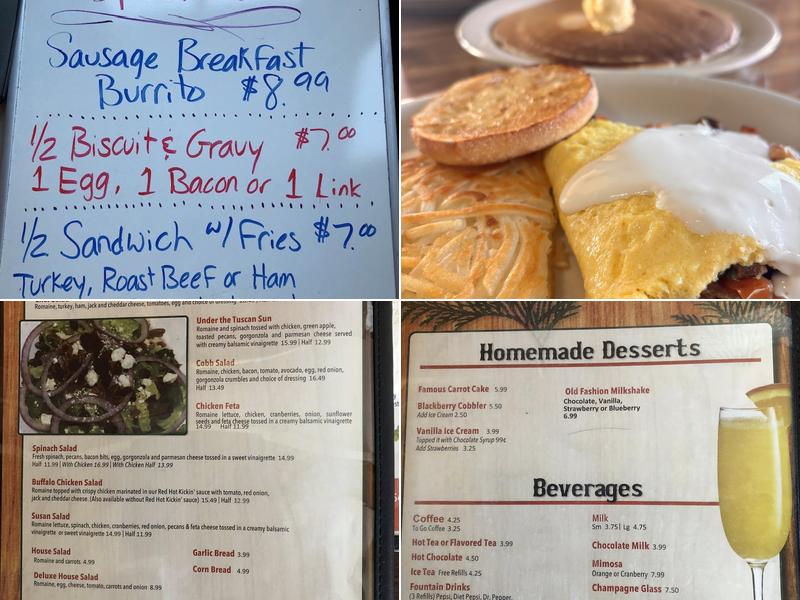 Sausage Breakfast
Burrito $8.99
1/2 Biscuit & Gravy $7.00
1 Egg, 1 Bacon or 1 Link
1/2 Sandwich w/ Fries $7.00
Turkey, Roast Beef or Ham
Romaine, turkey, ham, jack and cheddar cheese, tomatoes, egg and choice of dressing
Under the Tuscan Sun
Romaine and spinach tossed with chicken, green apple,
toasted pecans, gorgonzola and parmesan cheese served
with creamy balsamic vinaigrette 15.99 | Half 12.99
Cobb Salad
Romaine, chicken, bacon, tomato, avocado, egg, red onion,
gorgonzola crumbles and choice of dressing 16.49
Half 13.49
Chicken Feta
Romaine lettuce, chicken, cranberries, onion, sunflower
seeds and feta cheese tossed in a creamy balsamic vinaigrette
14.99 Half 11.99
Spinach Salad
Fresh spinach, pecans, bacon bits, egg, gorgonzola and parmesan cheese tossed in a sweet vinaigrette 14.99
Half 11.99 | With Chicken 16.99 | With Chicken Half 13.99
Buffalo Chicken Salad
Romaine topped with crispy chicken marinated in our Red Hot Kickin' sauce with tomato, red onion,
jack and cheddar cheese. (Also available without Red Hot Kickin' sauce) 15.49 | Half 12.99
Susan Salad
Romaine lettuce, spinach, chicken, cranberries, red onion, pecans & feta cheese tossed in a creamy balsamic
vinaigrette or sweet vinaigrette 14.99 | Half 11.99
House Salad
Romaine and carrots 4.99
Deluxe House Salad
Romaine, egg, cheese, tomato, carrots and onion 8.99
Garlic Bread 3.99
Corn Bread 4.99
Homemade Desserts
Famous Carrot Cake 5.99
Blackberry Cobbler 5.50
Add Ice Cream 2.50
Vanilla Ice Cream 3.99
Topped it with Chocolate Syrup 99¢
Add Strawberries 3.25
Old Fashion Milkshake
Chocolate, Vanilla,
Strawberry or Blueberry
6.99
Beverages
Coffee 4.25
To Go Coffee 3.25
Hot Tea or Flavored Tea 3.99
Hot Chocolate 4.50
Ice Tea Free Refills 4.25
Fountain Drinks
(3 Refills) Pepsi, Diet Pepsi, Dr. Pepper,
Milk
Sm 3.75 | Lg 4.75
Chocolate Milk 3.99
Mimosa
Orange or Cranberry 7.99
Champagne Glass 7.50